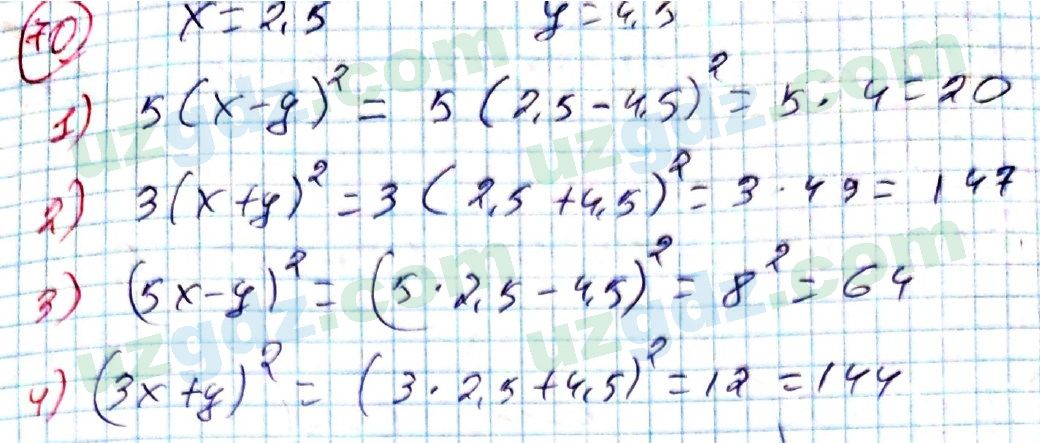 70) x = 2,5 y = 4,5
1) 5(x-y)² = 5(2,5-4,5)² = 5·4=20
2) 3(x+y)² = 3(2,5+4,5)² = 3·49 = 147
3) (5x-y)² = (5·2,5-4,5)² = 8² = 64
4) (3x+y)² = (3·2,5+4,5)² = 12 = 144
uzgdz.com
uzgdz.com
uzgdz.com
uzgdz.com